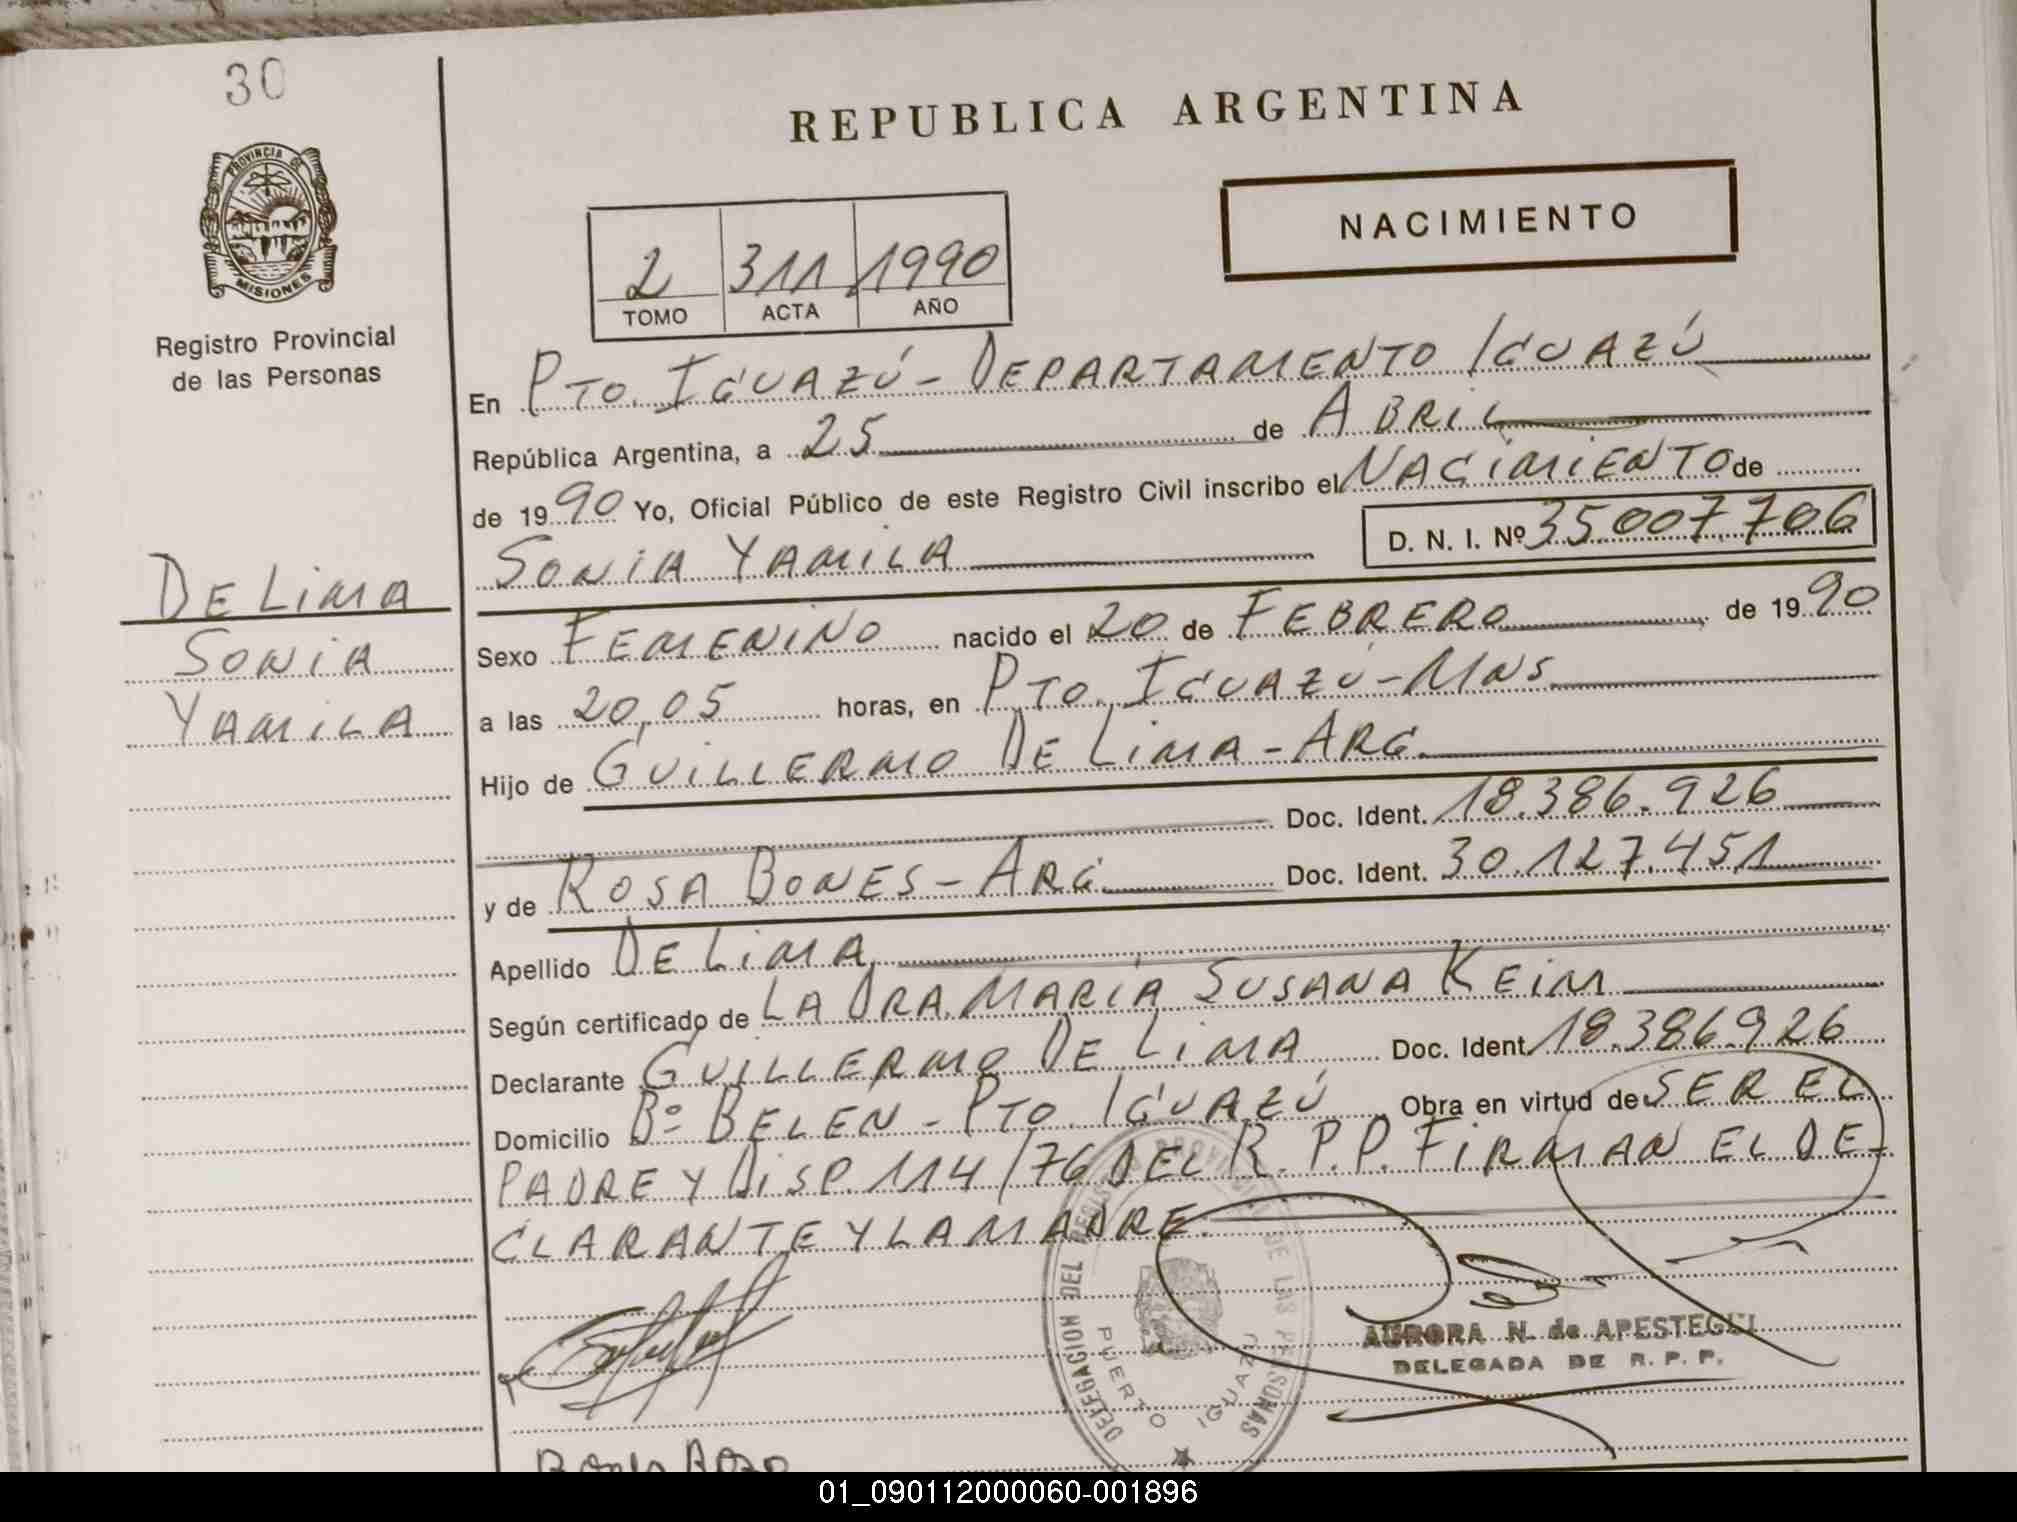 30
PROVINCIA DE
MISIONES
Registro Provincial
de las Personas
DE LIMA
SONIA
YAMILA
REPUBLICA ARGENTINA
NACIMIENTO
2 311 1990
TOMO ACTA AÑO
En PTO. IGUAZÚ - DEPARTAMENTO IGUAZÚ
República Argentina, a 25 de ABRIL
de 1990 Yo, Oficial Público de este Registro Civil inscribo el NACIMIENTO de
SONIA YAMILA D. N. I. Nº 35.007.706
Sexo FEMENINO nacido el 20 de FEBRERO de 1990
a las 20,05 horas, en PTO. IGUAZÚ - MNS
Hijo de GUILLERMO DE LIMA - ARG.
Doc. Ident. 18.386.926
y de ROSA BONES - ARG. Doc. Ident. 30.127.451
Apellido DE LIMA
Según certificado de LA DRA. MARÍA SUSANA KEIM
Declarante GUILLERMO DE LIMA Doc. Ident. 18.386.926
Domicilio Bº BELEN - PTO. IGUAZÚ Obra en virtud de SER EL
PADRE Y DISP. 114/76 DEL R. P. P. FIRMAN EL DE-
CLARANTE Y LA MADRE.
DELEGACION DEL REGISTRO PROVINCIAL DE LAS PERSONAS
PUERTO IGUAZU
AURORA N. de APESTEGUI
DELEGADA DE R. P. P.
01_090112000060-001896